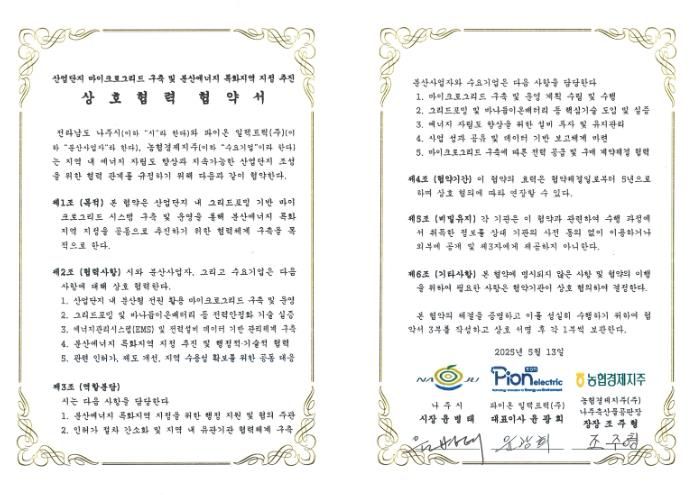 산업단지 마이크로그리드 구축 및 분산에너지 특화지역 지정 추진
상호협력 협약서
전라남도 나주시(이하 "시"라 한다)와 파이온 일렉트릭(주)(이
하 "분산사업자"라 한다), 농협경제지주(이하 "수요기업"이라 한다)
는 지역 내 에너지 자립도 향상과 지속가능한 산업단지 조성
을 위한 협력 관계를 규정하기 위해 다음과 같이 협약한다.
제1조 (목적) 본 협약은 산업단지 내 그리드포밍 기반 마이
크로그리드 시스템 구축 및 운영을 통해 분산에너지 특화
지역 지정을 공동으로 추진하기 위한 협력체계 구축을 목
적으로 한다.
제2조 (협력사항) 시와 분산사업자, 그리고 수요기업은 다음
사항에 대해 상호 협력한다.
1. 산업단지 내 분산형 전원 활용 마이크로그리드 구축 및 운영
2. 그리드포밍 및 바나듐이온배터리 등 전력안정화 기술 실증
3. 에너지관리시스템(EMS) 및 전력설비 데이터 기반 관리체계 구축
4. 분산에너지 특화지역 지정 추진 및 행정적·기술적 협력
5. 관련 인허가, 제도 개선, 지역 수용성 확보를 위한 공동 대응
제3조 (역할분담)
시는 다음 사항을 담당한다
1. 분산에너지 특화지역 지정을 위한 행정 지원 및 협의 주관
2. 인허가 절차 간소화 및 지역 내 유관기관 협력체계 구축
분산사업자와 수요기업은 다음 사항을 담당한다
1. 마이크로그리드 구축 및 운영 계획 수립 및 수행
2. 그리드포밍 및 바나듐이온배터리 등 핵심기술 도입 및 실증
3. 에너지 자립도 향상을 위한 설비 투자 및 유지관리
4. 사업 성과 공유 및 데이터 기반 보고체계 마련
5. 마이크로그리드 구축에 따른 전력 공급 및 구매 계약체결 협력
제4조 (협약기간) 이 협약의 효력은 협약체결일로부터 5년으로
하며 상호 협의에 따라 연장할 수 있다.
제5조 (비밀유지) 각 기관은 이 협약과 관련하여 수행 과정에
서 취득한 정보를 상대 기관의 사전 동의 없이 이용하거나
외부에 공개 및 제3자에게 제공하지 아니한다.
제6조 (기타사항) 본 협약에 명시되지 않은 사항 및 협약의 이행
을 위하여 필요한 사항은 협약기관이 상호 협의하여 결정한다.
본 협약의 체결을 증명하고 이를 성실히 수행하기 위하여 협
약서 3부를 작성하고 상호 서명 후 각 1부씩 보관한다.
2025년 5월 13일
NAJU Pion electric 농협경제지주
나주시 파이온 일렉트릭(주) 농협경제지주(주)
나주축산물공판장
시장 윤병태 대표이사 윤광희 장장 조주형
윤병태 윤광희 조주형